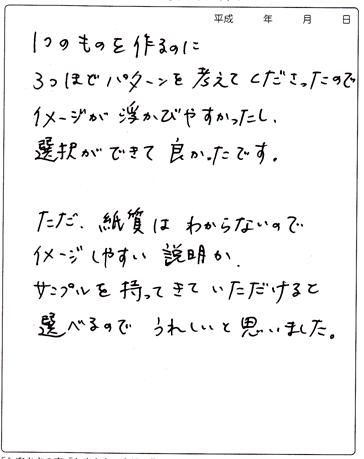 平成　　年　　月　　日
1つのものを作るのに
3つほどパターンを考えてくださったので
イメージが浮かびやすかったし、
選択ができて良かったです。
ただ、紙質はわからないので
イメージしやすい説明か、
サンプルを持ってきていただけると
選べるのでうれしいと思いました。